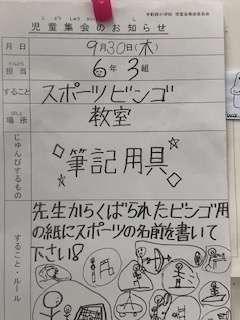 児童集会のお知らせ
月日 9月30日(木)
担当 6年3組
すること スポーツビンゴ
場所 教室
じゅんびするもの 筆記用具
することㆍルール 先生からくばられたビンゴ用
の紙にスポーツの名前を書いて
下さい!